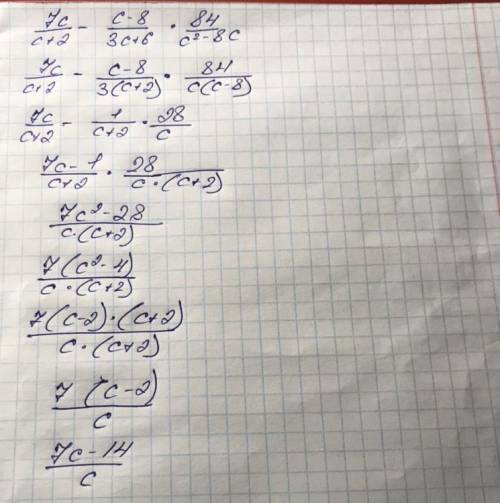 7c/(c+2) - (c-8)/(3c+6) · 84/(c²-8c)
7c/(c+2) - (c-8)/(3(c+2)) · 84/(c(c-8))
7c/(c+2) - 1/(c+2) · 28/c
(7c-1)/(c+2) · 28/(c·(c+2))
(7c²-28)/(c·(c+2))
7(c²-4)/(c·(c+2))
7(c-2)·(c+2)/(c·(c+2))
7(c-2)/c
(7c-14)/c